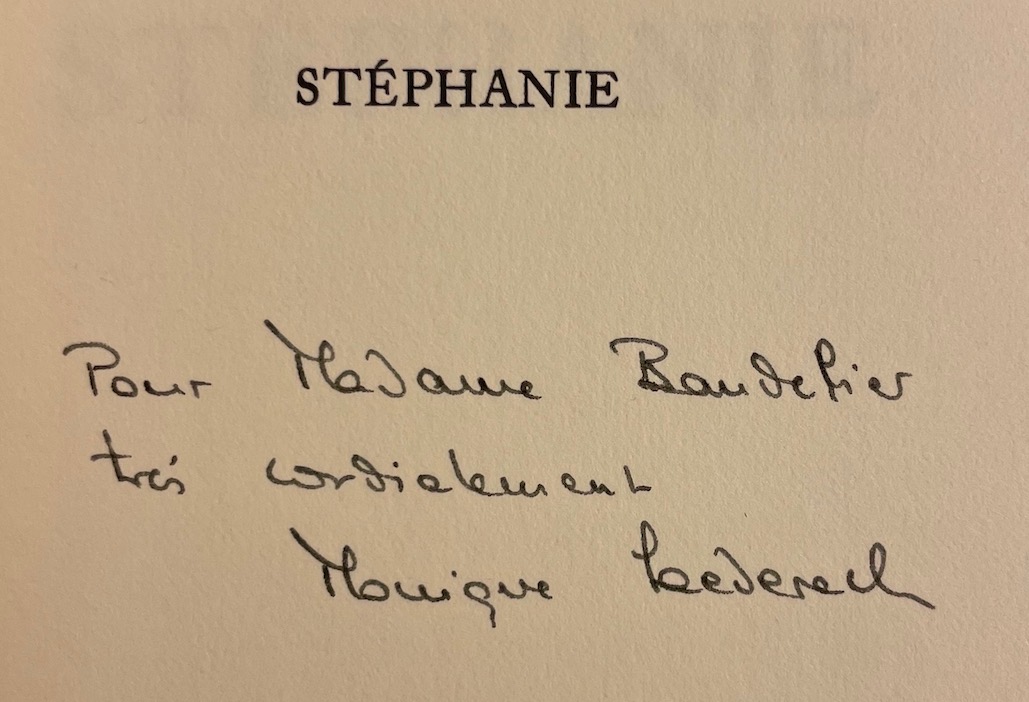 STÉPHANIE
Pour Madame Bandelier
très cordialement
Monique Laederach